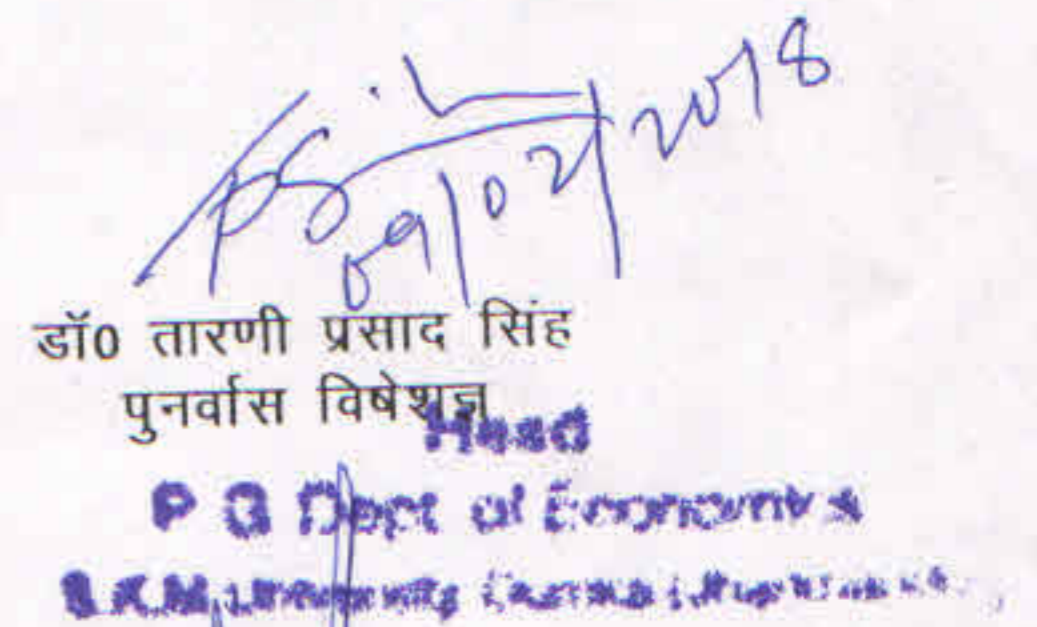 09/02/2018
डॉ0 तारणी प्रसाद सिंह
पुनर्वास विषेशज्ञ
Head
P G Dept of Economics
S.K.M. University